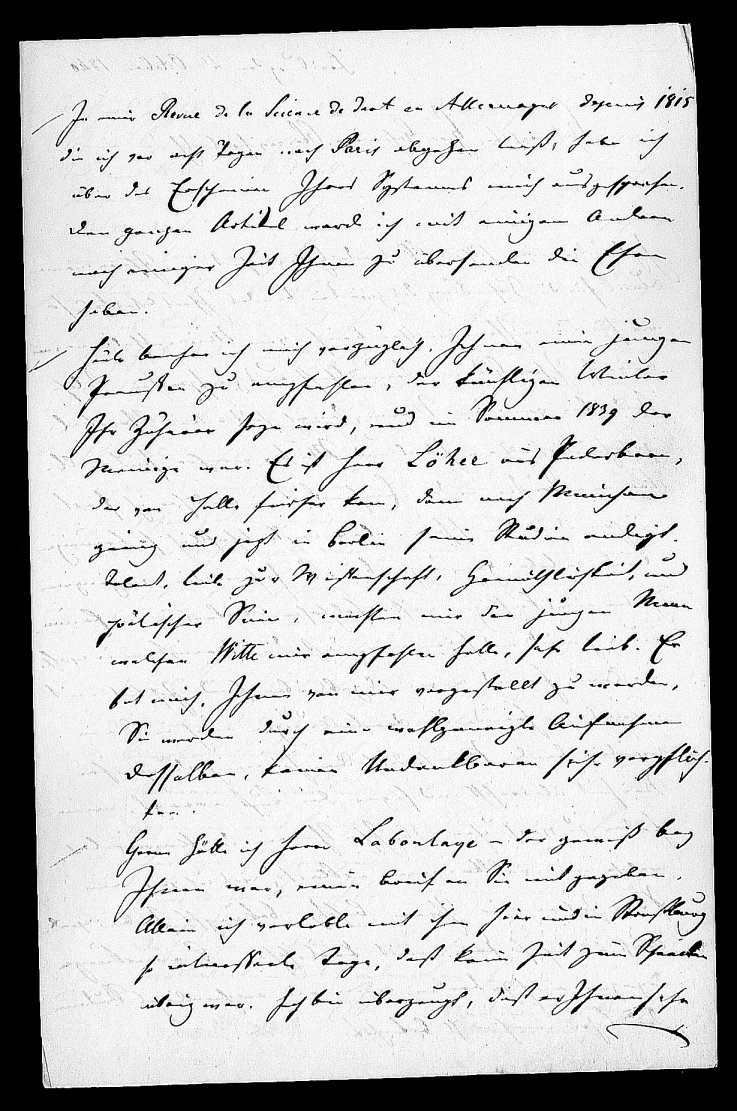 In mir Revue de la Science de droit en Allemagne depuis 1815
die ich vor acht Tagen nach Paris abgehen ließ, habe ich
über das Erscheinen Ihres Systems mich ausgesprochen.
Den ganzen Artikel werde ich mit einigen Andern
nach einiger Zeit Ihnen zu übersenden die Ehre
haben.
Heute beehre ich mich vorzüglich, Ihnen einen jungen
Preußen zu empfehlen, der künftigen Winter
Ihr Zuhörer seyn wird, und im Sommer 1839 der
Meinige war. Es ist Herr Löher aus Paderborn,
der von Halle hieher kam, dann nach München
ging und jetzt in Berlin seine Studien endigt.
Talent, Liebe zur Wissenschaft, Gemüthlichkeit, und
poetischer Sinn, machten mir den jungen Mann
welchen Witte mir empfohlen hatte, sehr lieb. Er
bat mich, Ihnen von mir vorgestellt zu werden,
Sie werden durch eine wohlgeneigte Aufnahme
desselben, keinen Undankbaren sich verpflich-
ten.
Gerne hätte ich Herrn Laboulaye – der gewiß bey
Ihnen war, einen Brief an Sie mitgegeben.
Allein ich verlebte mit ihm hier und in Straßburg
so interessante Tage, daß keine Zeit zum Schreiben
übrig war. Ich bin überzeugt, daß er Ihnen sehr